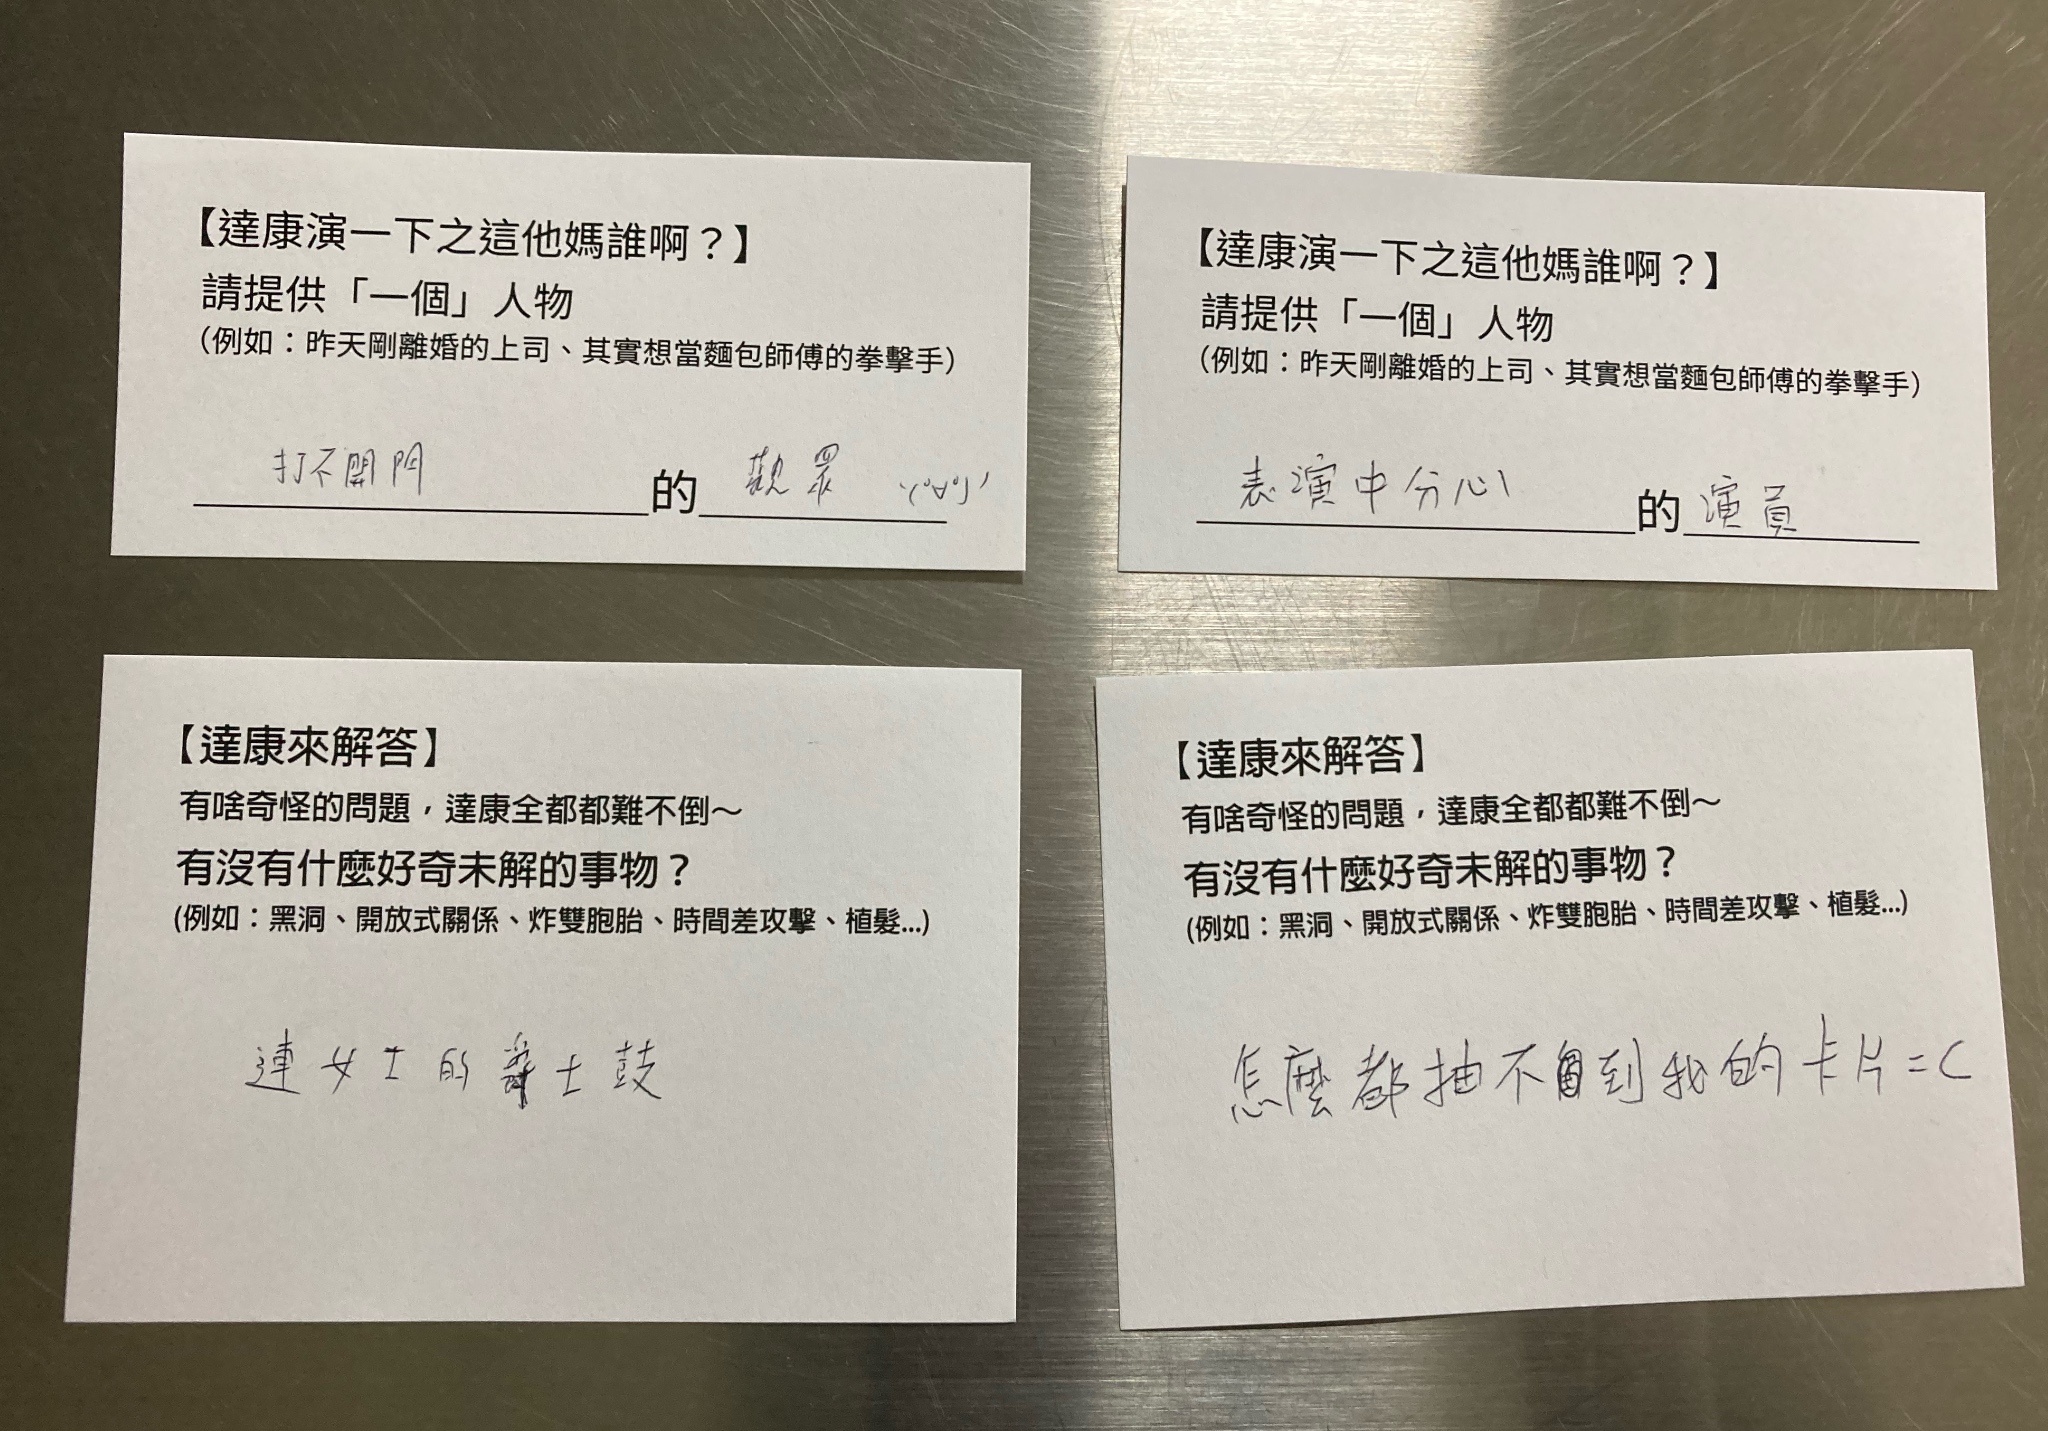 【達康演一下之這他媽誰啊？】
請提供「一個」人物
（例如：昨天剛離婚的上司、其實想當麵包師傅的拳擊手）
打不開門的觀眾
【達康演一下之這他媽誰啊？】
請提供「一個」人物
（例如：昨天剛離婚的上司、其實想當麵包師傅的拳擊手）
表演中分心的演員
【達康來解答】
有啥奇怪的問題，達康全都都難不倒～
有沒有什麼好奇未解的事物？
(例如：黑洞、開放式關係、炸雙胞胎、時間差攻擊、植髮...)
連女士的爵士鼓
【達康來解答】
有啥奇怪的問題，達康全都都難不倒～
有沒有什麼好奇未解的事物？
(例如：黑洞、開放式關係、炸雙胞胎、時間差攻擊、植髮...)
怎麼都抽不到我的卡片=C